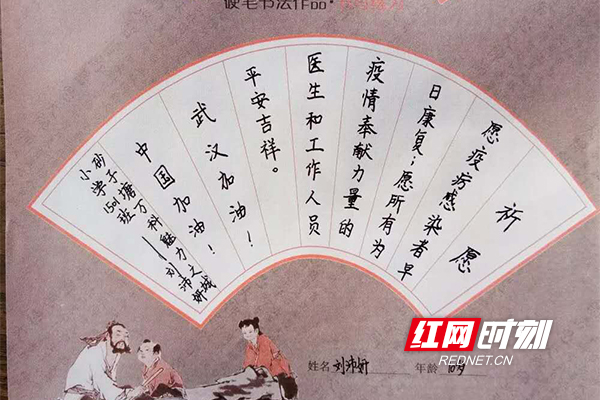 硬笔书法作品
祈愿
愿疫疠感染者早
日康复；愿所有为
疫情奉献力量的
医生和工作人员
平安吉祥。
武汉加油！
中国加油！
砂子塘万科魅力之城
小学1501班——刘沛妍
姓名 刘沛妍 年龄 10岁
红网时刻
REDNET.CN